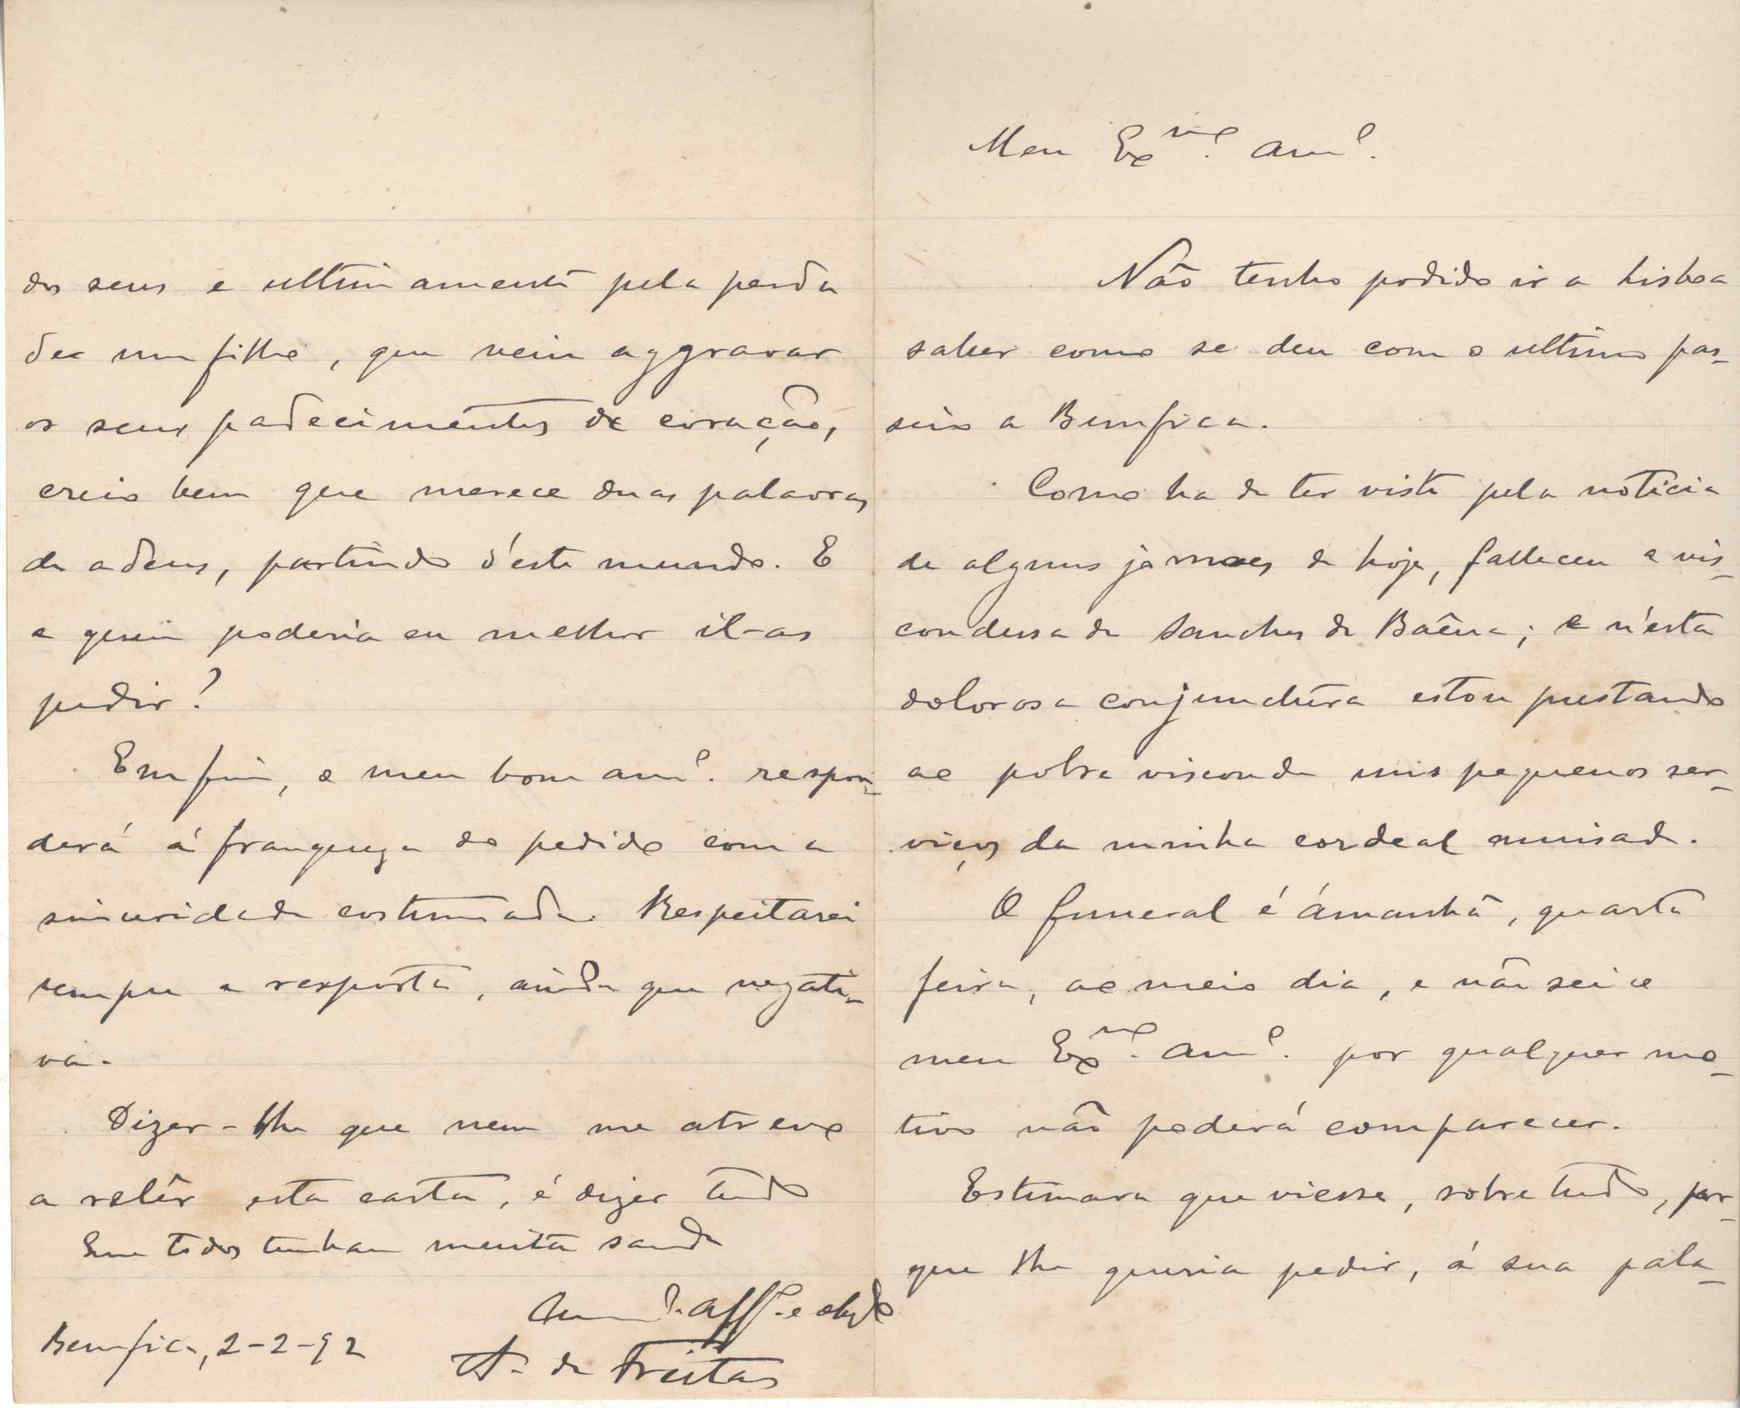 Meu Ex.mo Am.o
Não tenho podido ir a Lisboa
saber como se deu com o ultimo pas-
seio a Bemfica.
Como ha de ter visto pela noticia
de alguns jornaes de hoje, falleceu a vis-
condessa de Sanches de Baêna; e n'esta
dolorosa conjunctura estou prestando
ao pobre visconde uns pequenos ser-
viços da minha cordeal amisade.
O funeral é ámanhã, quarta
feira, ao meio dia, e não sei se o
meu Ex.mo Am.o por qualquer mo-
tivo não poderá comparecer.
Estimava que viesse, sobretudo, por-
que lhe queria pedir, á sua pala-
dos seus e ultimamente pela perda
de um filho, que veiu aggravar
os seus padecimentos de coração,
creio bem que merece duas palavras
de adeus, partindo d'este mundo. E
a quem poderia eu melhor il-as
pedir?
Emfim, o meu bom am.o respon-
derá á franqueza do pedido com a
sinceridade costumada. Respeitarei
sempre a resposta, ainda que negati-
va.
Dizer-lhe que nem me atrevo
a relêr esta carta, é dizer tudo
Que todos tenham muita saude
Am.o aff.o e obgdo
Bemfica, 2-2-92
A. de Freitas